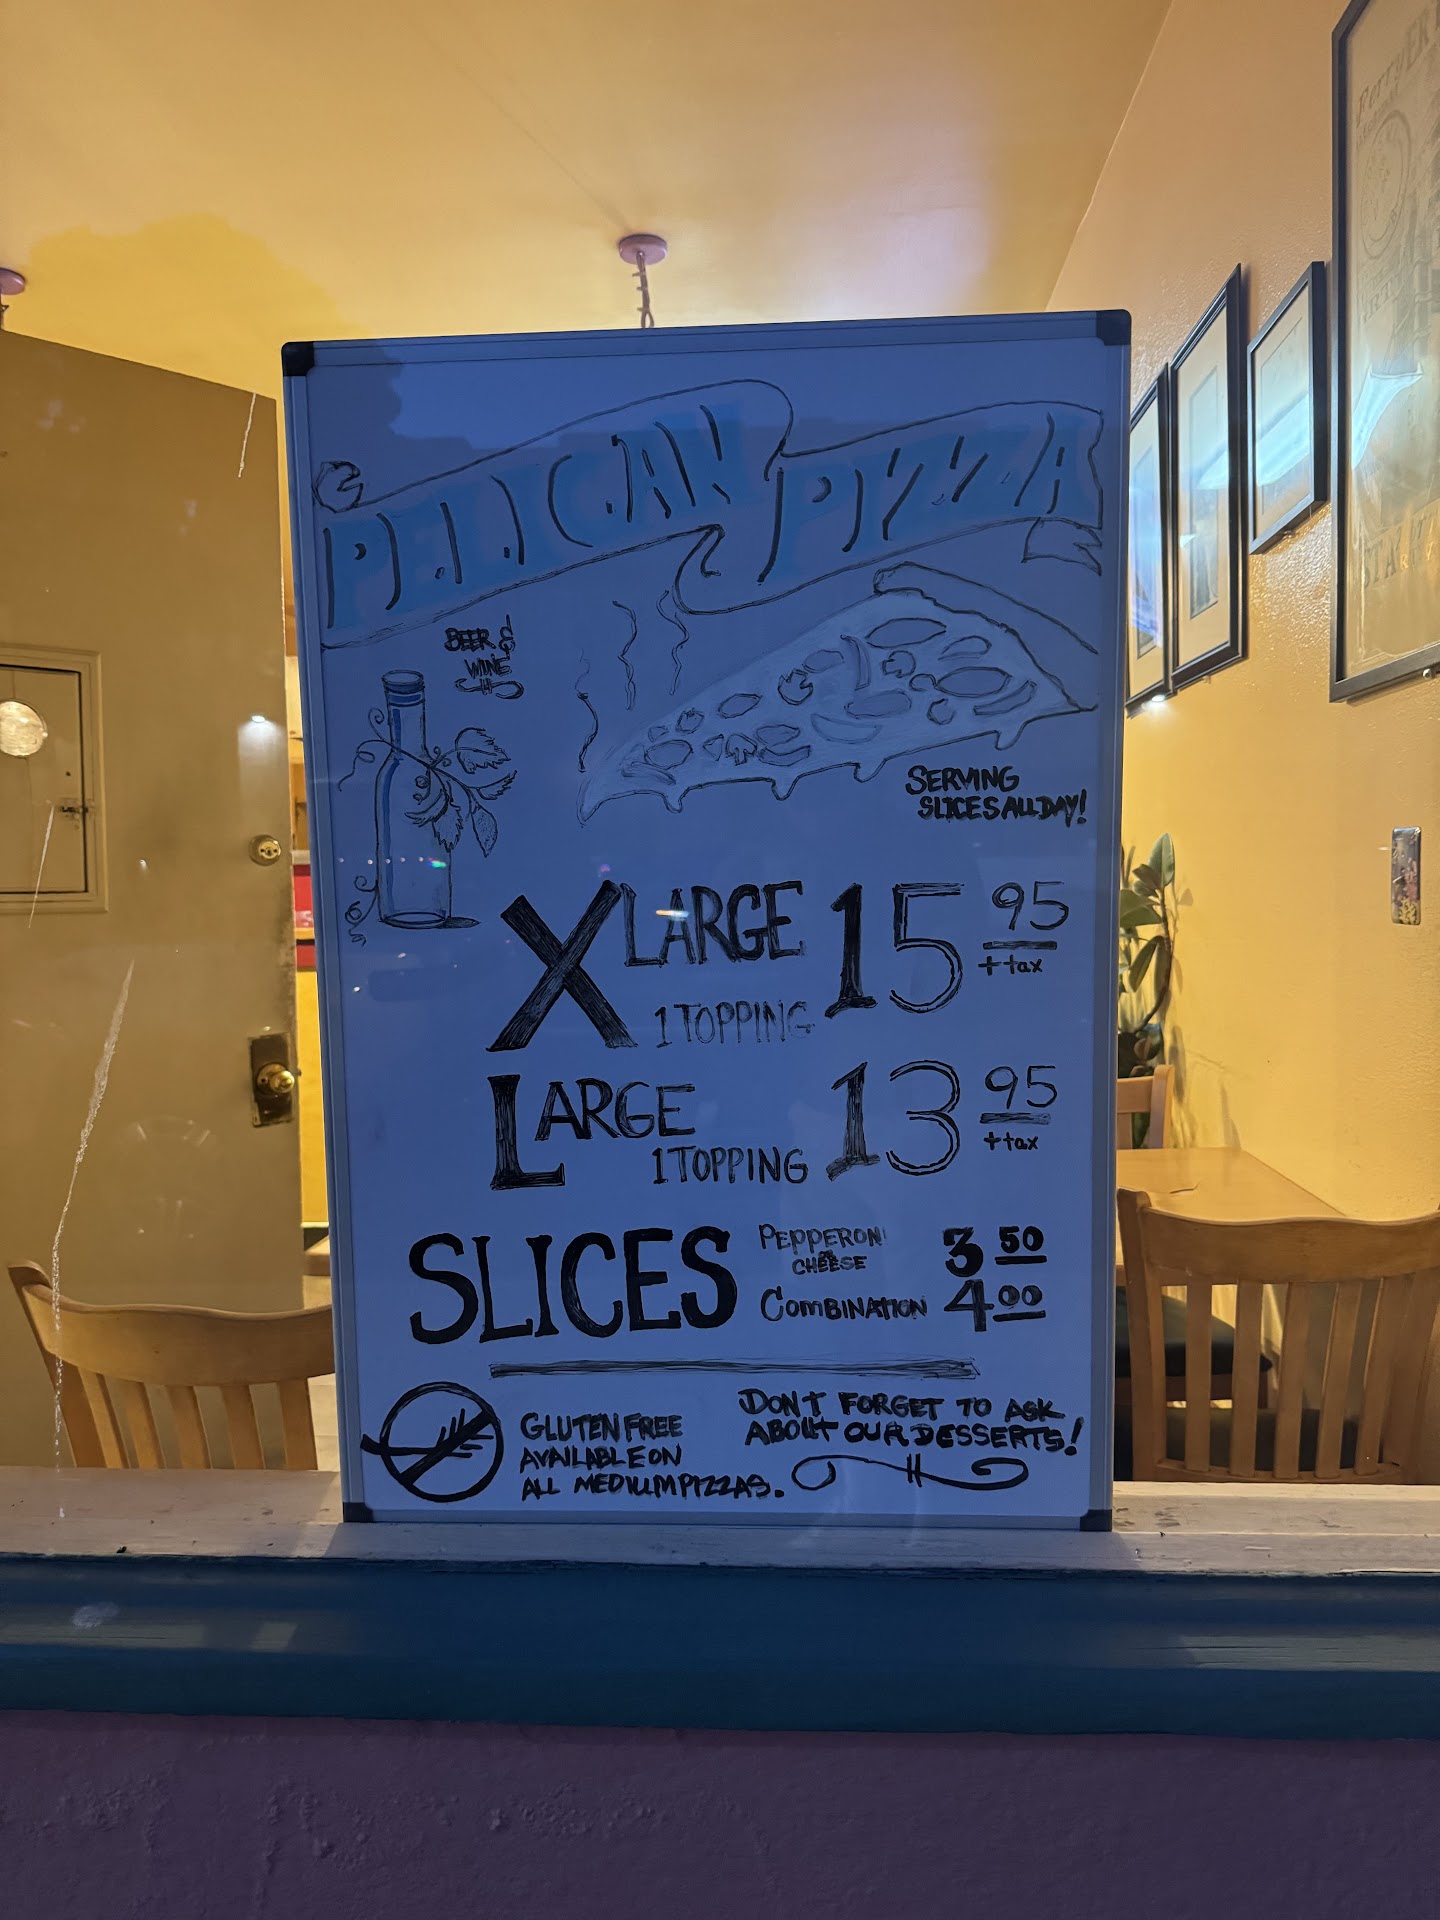 PELICAN PIZZA
BEER &
WINE
SERVING
SLICES ALL DAY!
XLARGE 15 95
+ tax
1 TOPPING
LARGE 13 95
+ tax
1 TOPPING
SLICES
PEPPERONI
OR
CHEESE
3 50
COMBINATION 4 00
GLUTEN FREE
AVAILABLE ON
ALL MEDIUM PIZZAS.
DON'T FORGET TO ASK
ABOUT OUR DESSERTS!